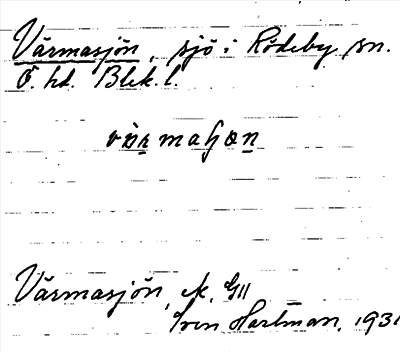 Värmasjön, sjö i Rödeby sn.
Ö. hd. Blek. l.
Värmasjön, ek. G11
Sven Hartman. 1931